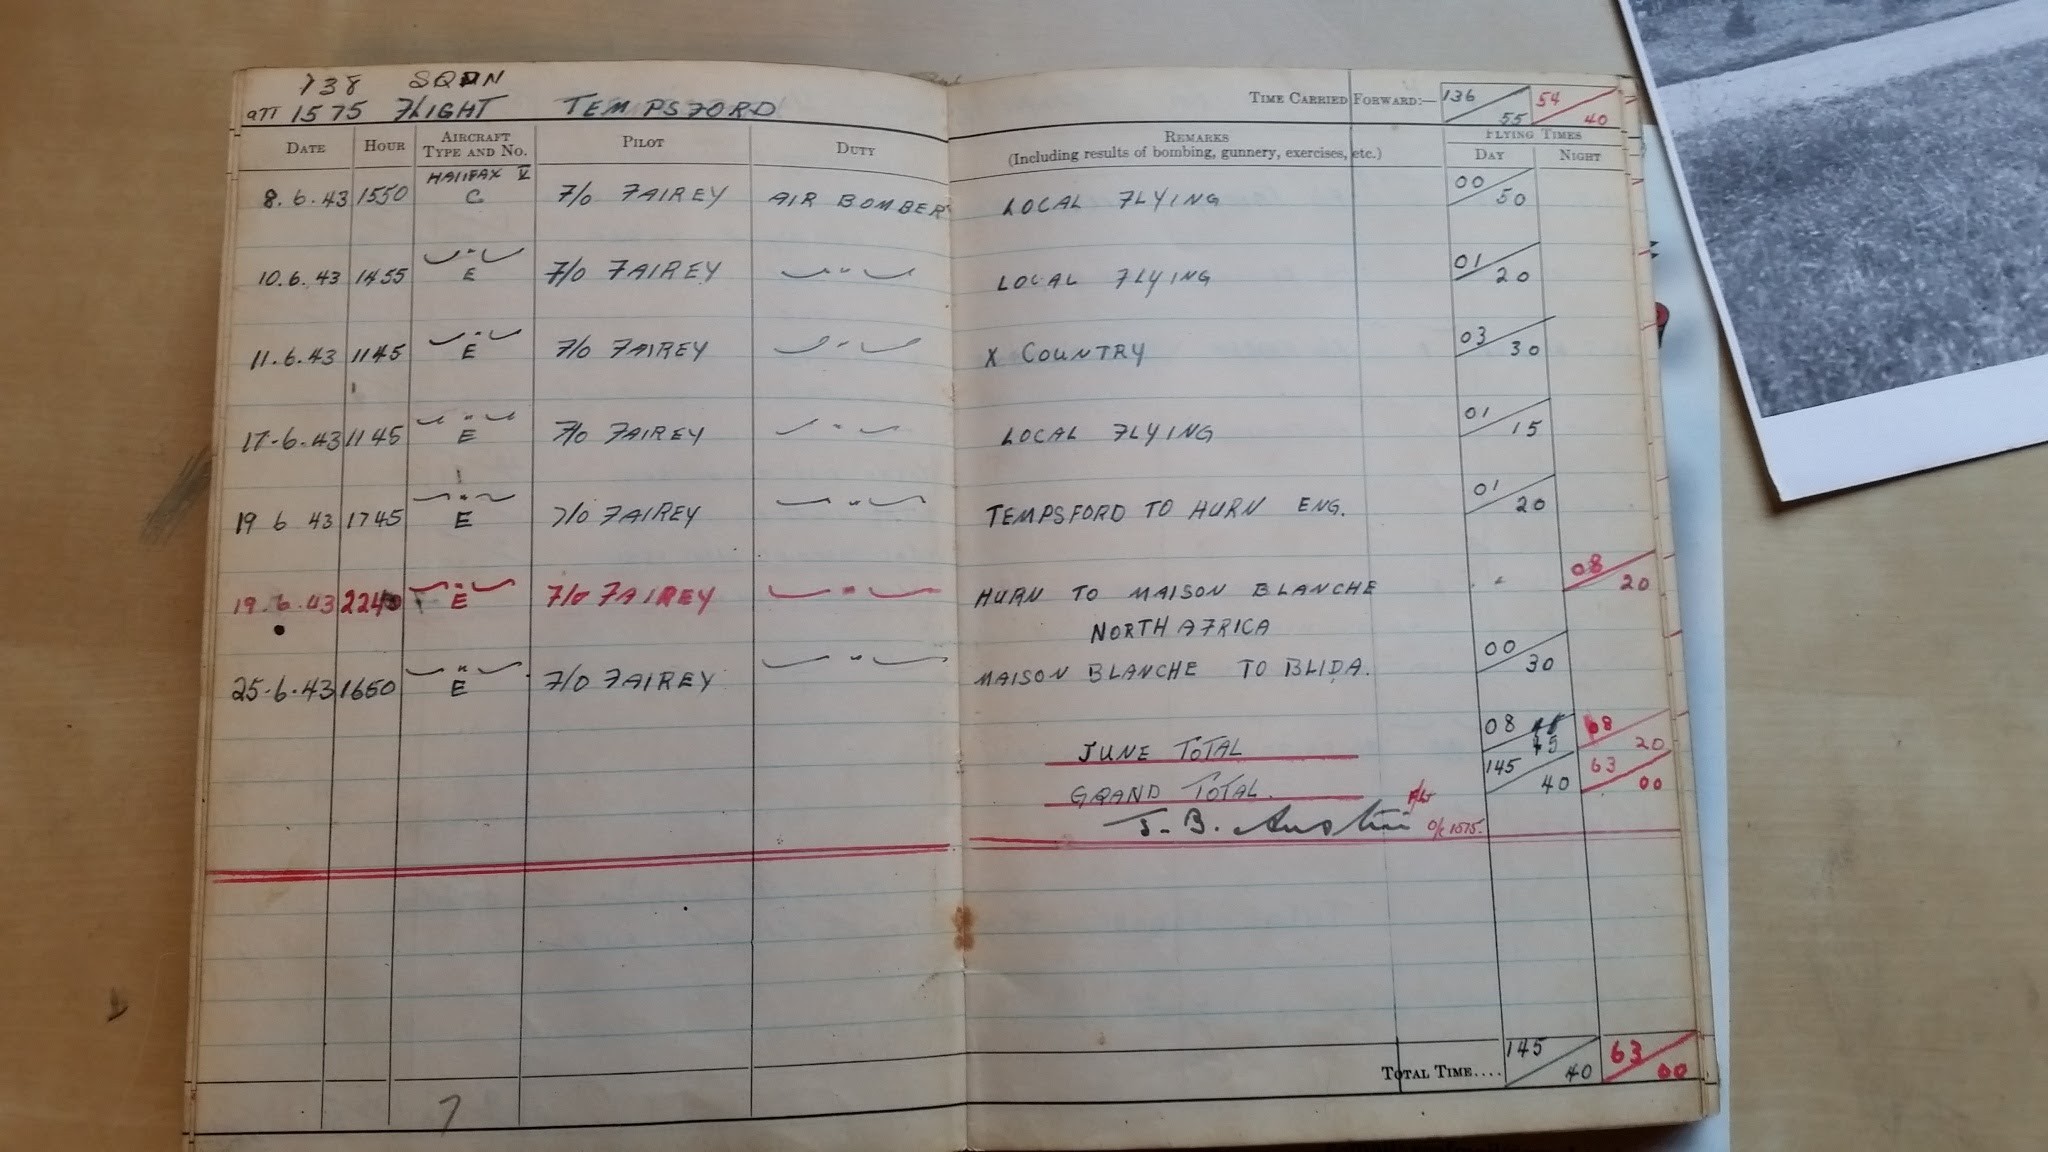 138 SQDN
ATT 1575 FLIGHT TEMPSFORD
TIME CARRIED FORWARD:— 136 55 54 40
DATE HOUR AIRCRAFT TYPE AND NO. PILOT DUTY REMARKS (Including results of bombing, gunnery, exercises, etc.) FLYING TIMES DAY NIGHT
8.6.43 1550 HALIFAX V C F/O FAIREY AIR BOMBER LOCAL FLYING 00 50
10.6.43 1455 —"— E F/O FAIREY —"— LOCAL FLYING 01 20
11.6.43 1145 —"— E F/O FAIREY —"— X COUNTRY 03 30
17-6.43 1145 —"— E F/O FAIREY —"— LOCAL FLYING 01 15
19 6 43 1745 —"— E F/O FAIREY —"— TEMPSFORD TO HURN ENG. 01 20
19.6.43 2240 —"— E F/O FAIREY —"— HURN TO MAISON BLANCHE 08 20
NORTH AFRICA
25-6-43 1650 —"— E F/O FAIREY —"— MAISON BLANCHE TO BLIDA. 00 30
JUNE TOTAL 08 45 08 20
GRAND TOTAL. 145 40 63 00
J.B. Austin F/Lt O/C 1575.
TOTAL TIME.... 145 40 63 00
7